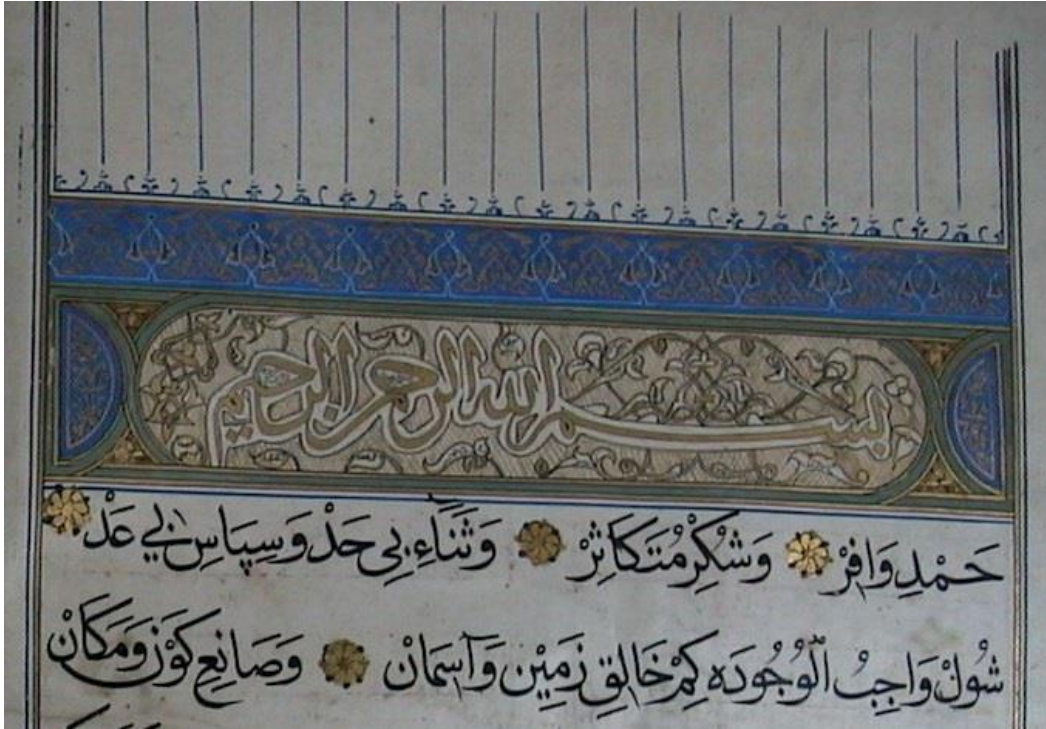 بسم الله الرحمن الرحيم
حَمْدِ وَافِرْ وَشُكْرِ مُتَكَاثِرْ وَثَنَاءِ بِی حَدْ وَسِپَاسِ بِي عَدْ
شُولْ وَاجِبُ الْوُجُودَه كِمْ خَالِقِ زَمِيْن وَآسِمَانْ وَصَانِعِ كَوْن وَمَكَانْ